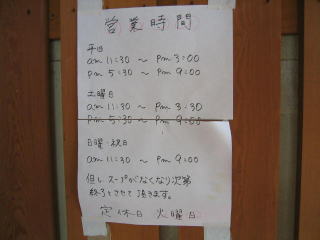 営業時間
平日
am 11:30 ～ pm 3:00
pm 5:30 ～ pm 9:00
土曜日
am 11:30 ～ pm 3:30
pm 5:30 ～ pm 9:00
日曜・祝日
am 11:30 ～ pm 9:00
但しスープがなくなり次第
終了とさせて頂きます。
定休日 火曜日